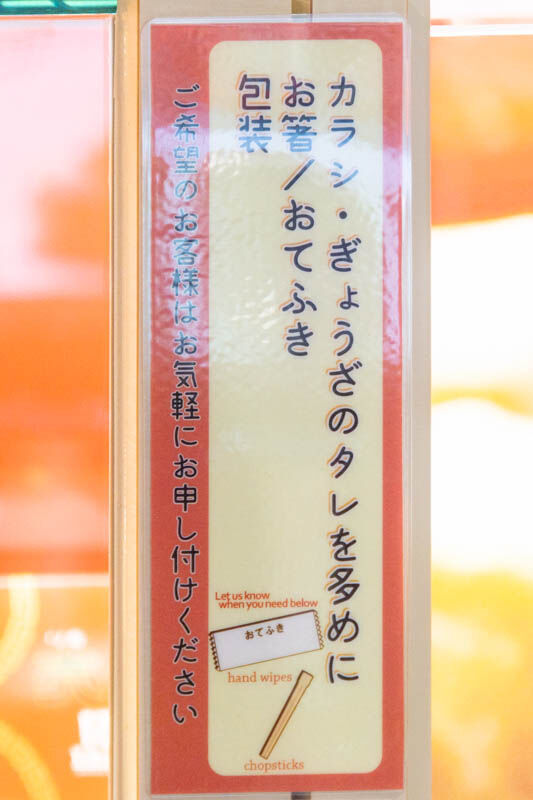 カラシ・ぎょうざのタレを多めに
お箸／おてふき
包装
ご希望のお客様はお気軽にお申し付けください
Let us know
when you need below
おてふき
hand wipes
chopsticks